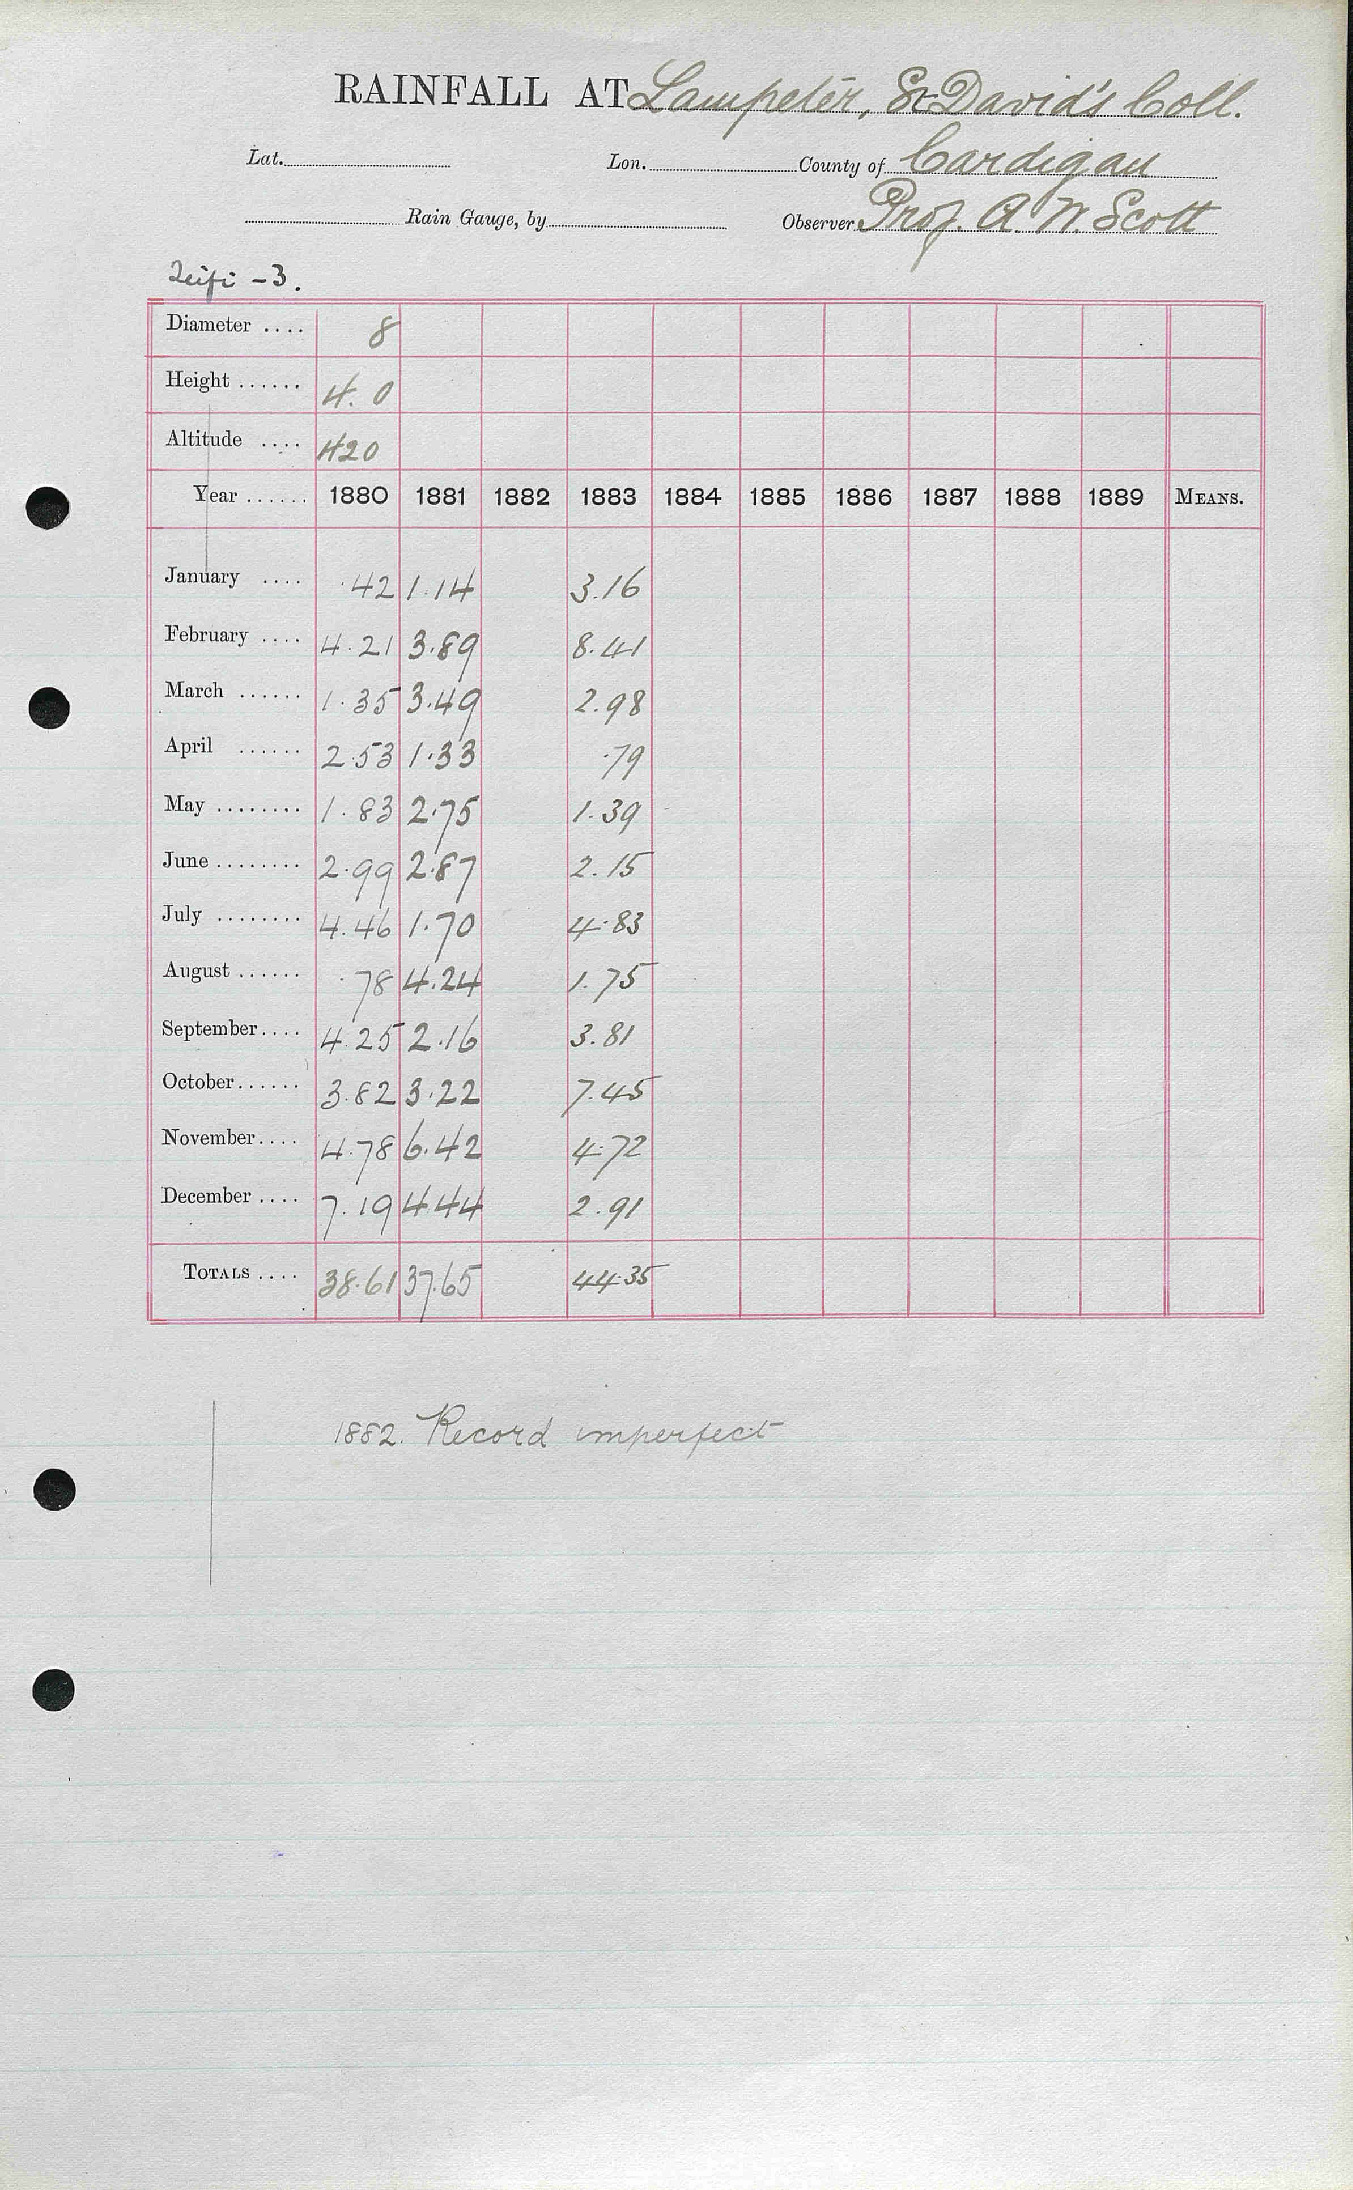 RAINFALL AT Lampeter, St David's Coll.
Lat. Lon. County of Cardigan
Rain Gauge, by Observer Prof. A. W. Scott
Teifi - 3.
Diameter .... 8
Height ...... 4. 0
Altitude .... 420
Year ...... 1880 1881 1882 1883 1884 1885 1886 1887 1888 1889 MEANS.
January .... .42 1.14 3.16
February .... 4.21 3.89 8.41
March ...... 1.35 3.49 2.98
April ...... 2.53 1.33 .79
May ........ 1.83 2.75 1.39
June ........ 2.99 2.87 2.15
July ........ 4.46 1.70 4.83
August ...... .78 4.24 1.75
September .... 4.25 2.16 3.81
October ...... 3.82 3.22 7.45
November .... 4.78 6.42 4.72
December .... 7.19 4.44 2.91
TOTALS .... 38.61 37.65 44.35
1882. Record imperfect